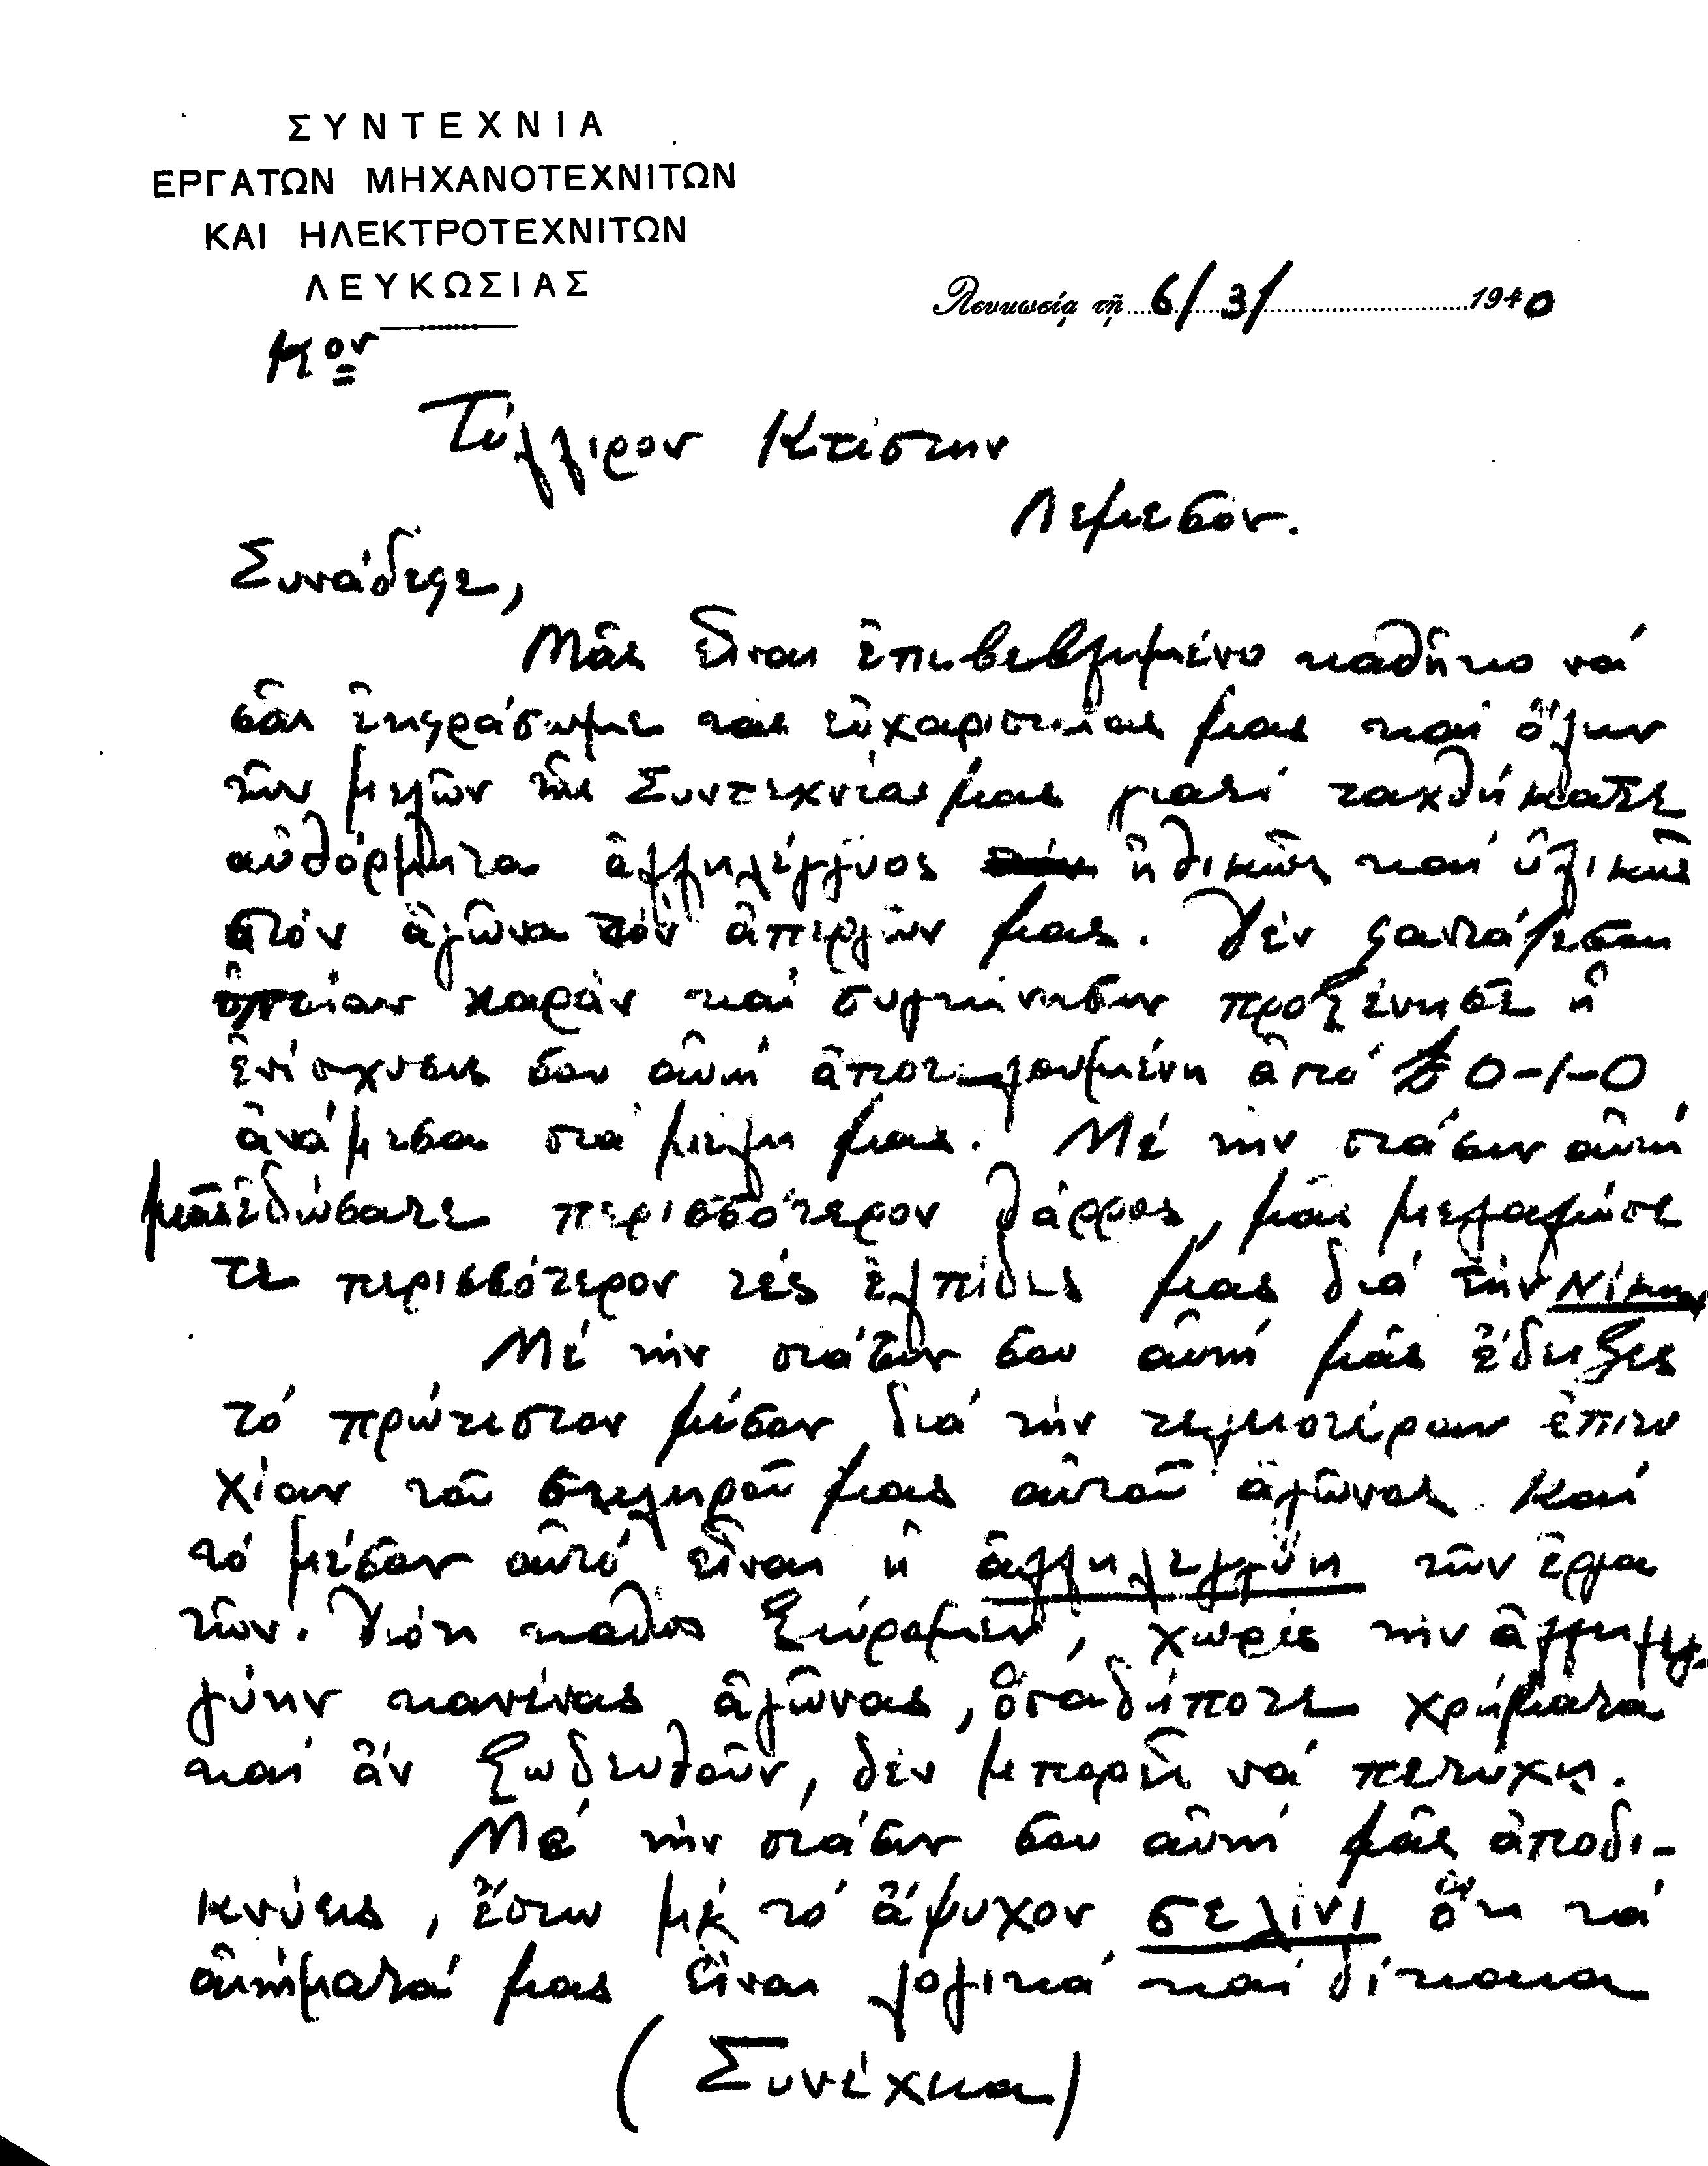 ΣΥΝΤΕΧΝΙΑ
ΕΡΓΑΤΩΝ ΜΗΧΑΝΟΤΕΧΝΙΤΩΝ
ΚΑΙ ΗΛΕΚΤΡΟΤΕΧΝΙΤΩΝ
ΛΕΥΚΩΣΙΑΣ
Λευκωσίᾳ τῇ 6/3/ 1940
Κον
Τύλλιρον Κτίστην
Λεμεσόν.
Συνάδεφε,
Μᾶς εἶναι ἐπιβεβλημένο καθῆκο νά
σᾶς ἐκφράσωμε τας εὐχαριστίας μας καί ὅλων
τῶν μελῶν τῆς Συντεχνίας μας γιατί ταχθήκατε
αὐθόρμητα ἀλληλέγγυος ἠθικῶς καί ὑλικῶς
στόν ἀγῶνα τόν ἀπεργῶν μας. Δέν φαντάζεσαι
ὁποίαν χαράν καί συγκίνησιν προξένησε ἡ
ἐνίσχυσις σου αὐτή ἀποτελουμένη ἀπό £0-1-0
ἀνάμεσα στά μέλη μας. Μέ τήν στάσιν αὐτή
μᾶς ἐδώσατε περισσότερον θάρρος, μᾶς μεγαλώσε
τε περισσότερον τές ἐλπίδες μας διά τήν Νίκην
Μέ τήν στάσιν σου αὐτή μᾶς ἔδειξες
τό πρώτιστον μέσον διά τήν τελειοτέραν ἐπιτυ
χίαν τοῦ σκληροῦ μας αὐτοῦ ἀγῶνος. Καί
τό μέσον αὐτό εἶναι ἡ ἀλληλεγγύη τῶν ἐργα
τῶν. Διότι καθώς ξεύρομεν, χωρίς τήν ἀλληλεγ-
γύην κανένας ἀγῶνας, ὁσαδήποτε χρήματα
καί ἄν ξωδευθοῦν, δέν μπορεῖ νά πετύχῃ.
Μέ τήν στάσιν σου αὐτή μᾶς ἀποδι-
κνύεις, ἔστω μέ τό ἄψυχον σελίνι ὅτι τά
αἰτήματά μας εἶναι λογικά καί δίκαια
(Συνέχεια)